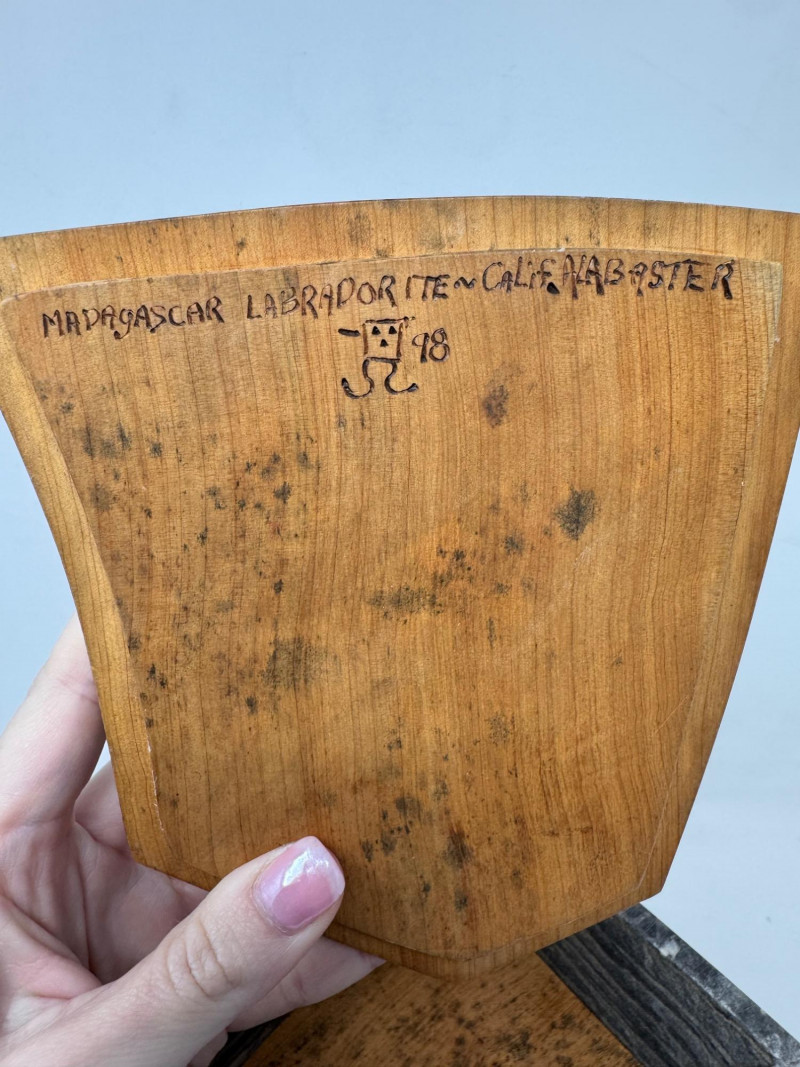 MADAGASCAR LABRADORITE ~ CALIF. ALABASTER
98